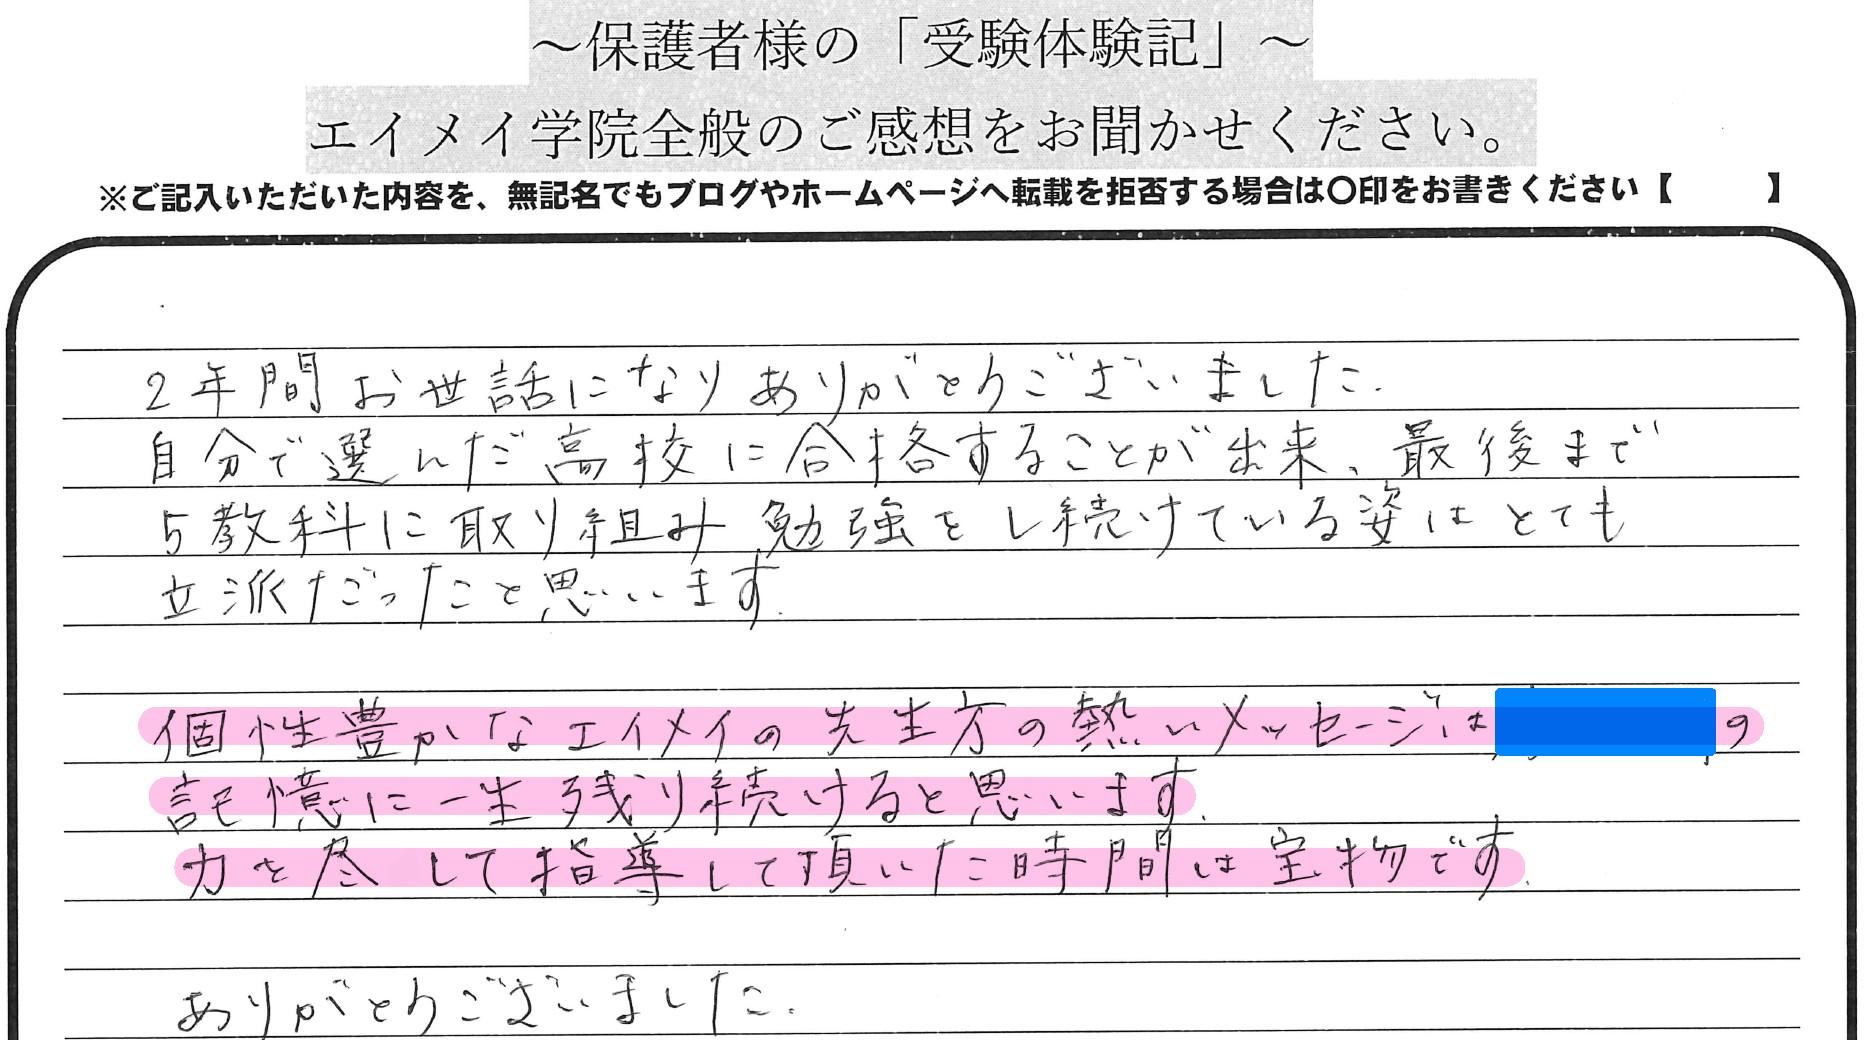 ～保護者様の「受験体験記」～
エイメイ学院全般のご感想をお聞かせください。
※ご記入いただいた内容を、無記名でもブログやホームページへ転載を拒否する場合は〇印をお書きください【　　　】
2年間お世話になりありがとうございました.
自分で選んだ高校に合格することが出来、最後まで
5教科に取り組み勉強をし続けている姿はとても
立派だったと思います.
個性豊かなエイメイの先生方の熱いメッセージは の
記憶に一生残り続けると思います.
力を尽して指導して頂いた時間は宝物です.
ありがとうございました.